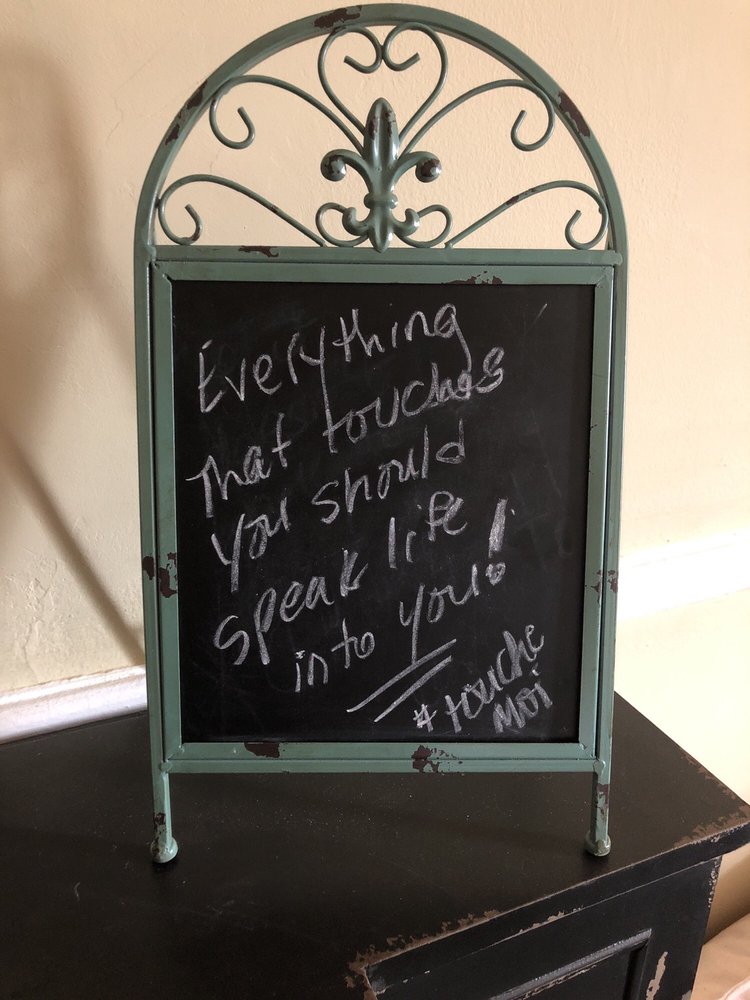 Everything
That touches
you should
speak life
into you!
#touche
Moi